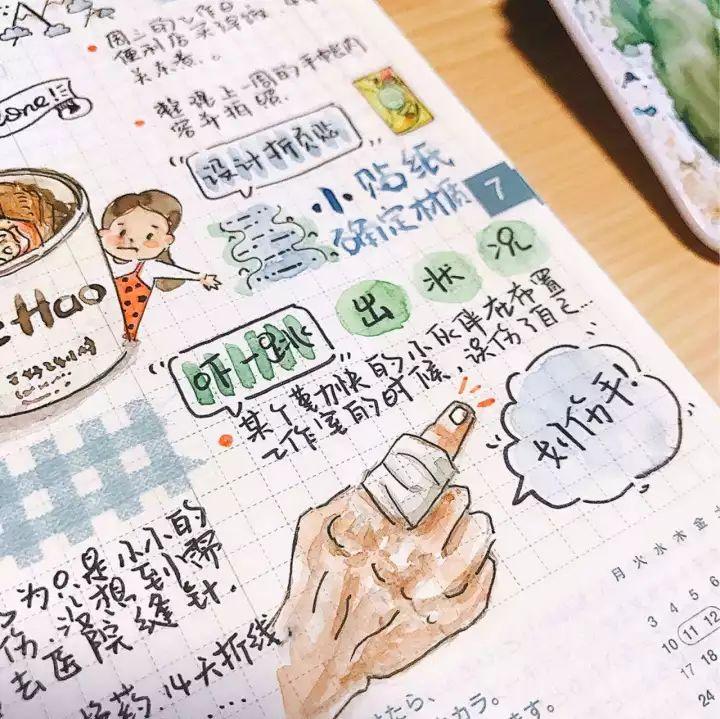 周三的工作日
便利店买
关东煮。
整理上一周的手帐内
容并拍照.
one!
设计折页贴
小贴纸
确定材质
7
出状况
吓一跳
某个董加快的小伙伴在布置
工作室的时候,误伤了自己...
划伤手!
Hao
为只是小小的
伤,没想到需
去医院缝针.
药.14天拆线
月火水木金
3 4 5 6
10 11 12
17 18
24
たら、
カラ。
ます。